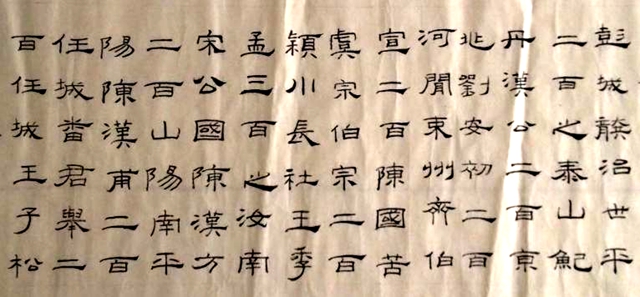 彭城龔治世平
二百之泰山鮑
丹漢公二百京
兆劉安初二百
河閒東州齊伯
宣二百陳國苦
虞宗伯宗二百
潁川長社王季
孟三百之汝南
宋公國陳漢方
二百山陽南平
陽陳漢甫二百
任城番君舉二
百任城王子松